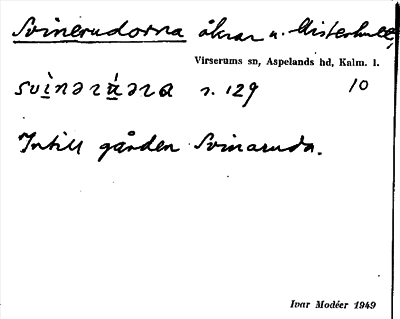 Svinerudorna åkrar u. Misterhult,
Virserums sn, Aspelands hd, Kalm. l.
s. 129 10
Intill gården Svinaruda.
Ivar Modéer 1949